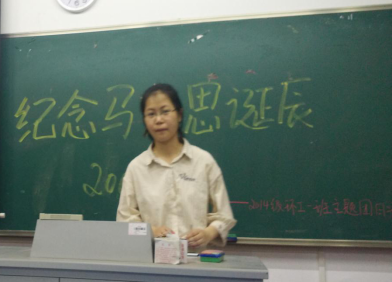 纪念马 思诞辰
20
——2014级环工一班主题团日